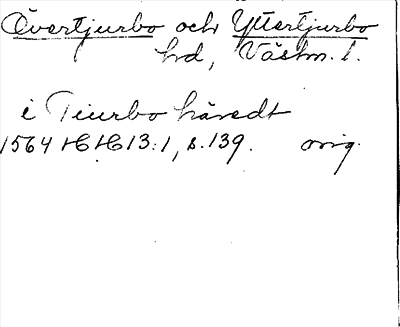 Övertjurbo och Yttertjurbo
hrd, Västm. l.
i Tiurbo häredt
1564 HH 13:1, s. 139. orig.